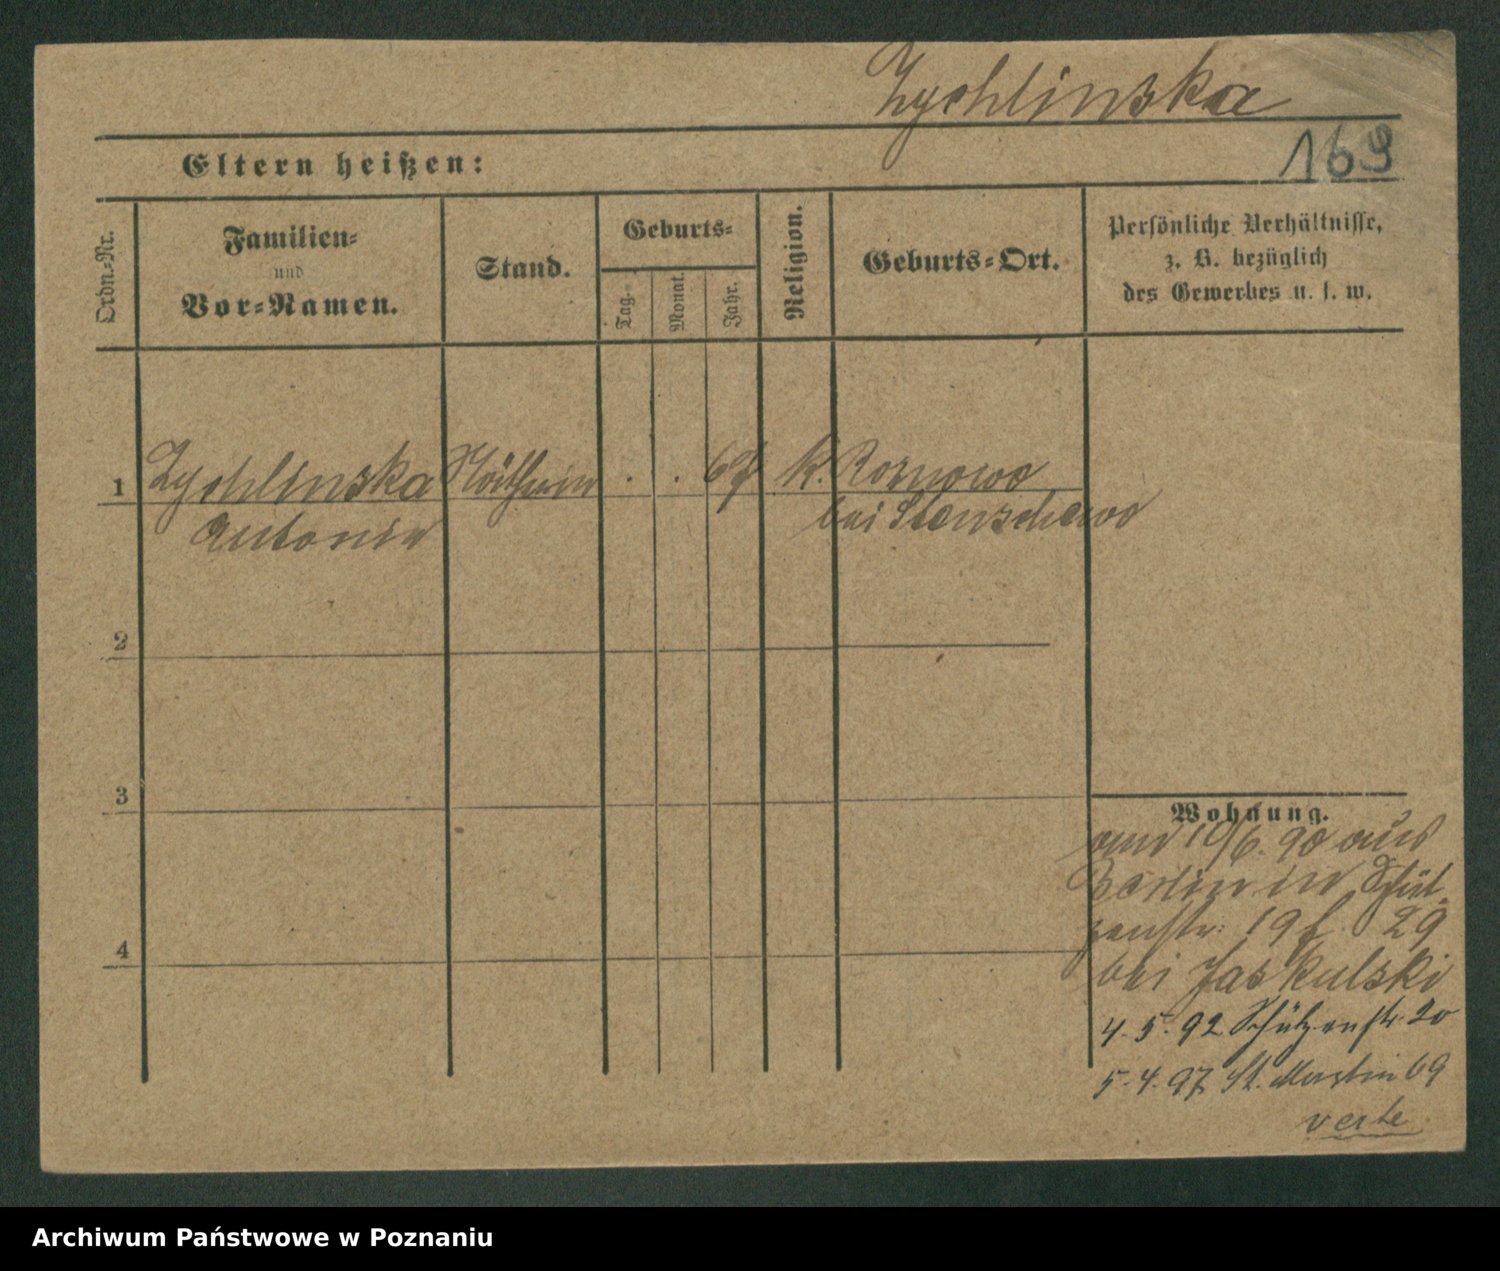 Zychlinska
Eltern heißen:
169
Ordn.=Nr.
Familien=
und
Vor=Namen.
Stand.
Geburts=
Tag.
Monat.
Jahr.
Religion.
Geburts=Ort.
Persönliche Verhältnisse,
z. B. bezüglich
des Gewerbes u. s. w.
1 Zychlinska Näitherin . . 67 k. Rosnowo
Antonie bei Stenschewo
2
3
4
Wohnung.
am 19/6. 90 aus
Berlin in Schüt-
zenstr. 19 f. 29
bei Jaskulski
4. 5. 92 Schützenstr. 20
5. 4. 97 St. Martin 69
verte
Archiwum Państwowe w Poznaniu